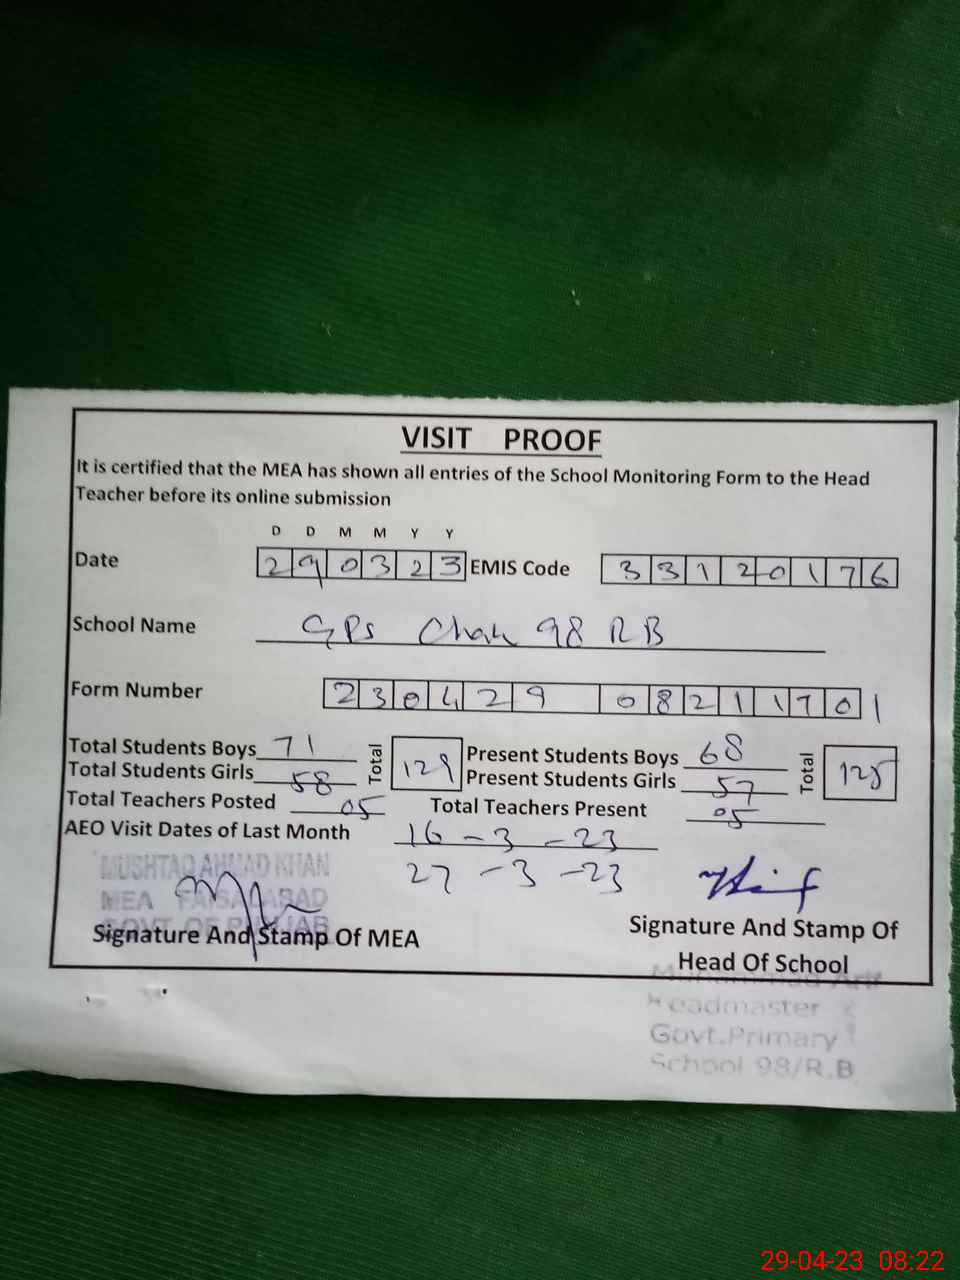 VISIT PROOF
It is certified that the MEA has shown all entries of the School Monitoring Form to the Head
Teacher before its online submission
D D M M Y Y
Date 290323 EMIS Code 33120176
School Name GPS Chak 98 RB
Form Number 230429 08211701
Total Students Boys 71 Total 129 Present Students Boys 68 Total 125
Total Students Girls 58 Present Students Girls 57
Total Teachers Posted 05 Total Teachers Present 05
AEO Visit Dates of Last Month 16-3-23
27-3-23
MUSHTAQ AHMAD KHAN
MEA FAISALABAD
GOVT OF PUNJAB
Signature And Stamp Of MEA
Signature And Stamp Of
Head Of School
Muhammad Arif
Headmaster
Govt.Primary
School 98/R.B
29-04-23 08:22